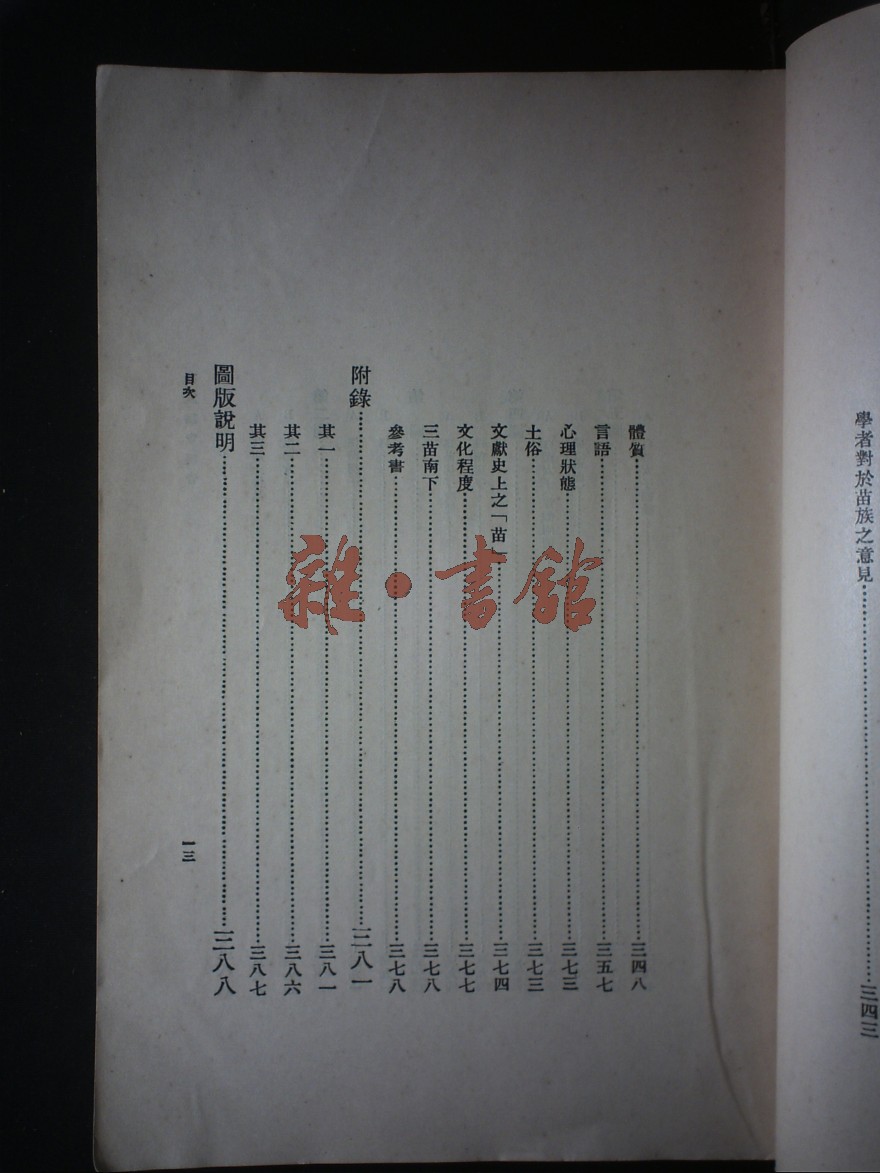 學者對於苗族之意見……三四三
體質……三四八
言語……三五七
心理狀態……三七三
土俗……三七三
文獻史上之「苗」……三七四
文化程度……三七七
三苗南下……三七八
參考書……三七八
附錄……三八一
其一……三八一
其二……三八六
其三……三八七
圖版說明……三八八
目次
一三
雜·書館